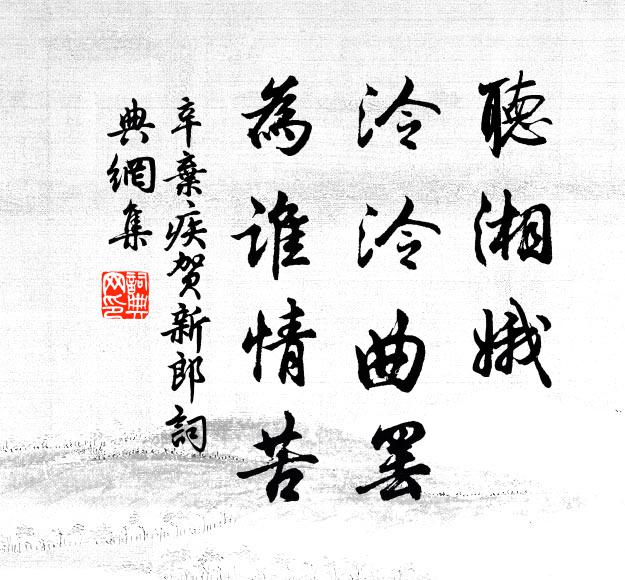 聽湘娥
泠泠曲罷
為誰情苦
辛棄疾賀新郎詞
典網集
詞典網印